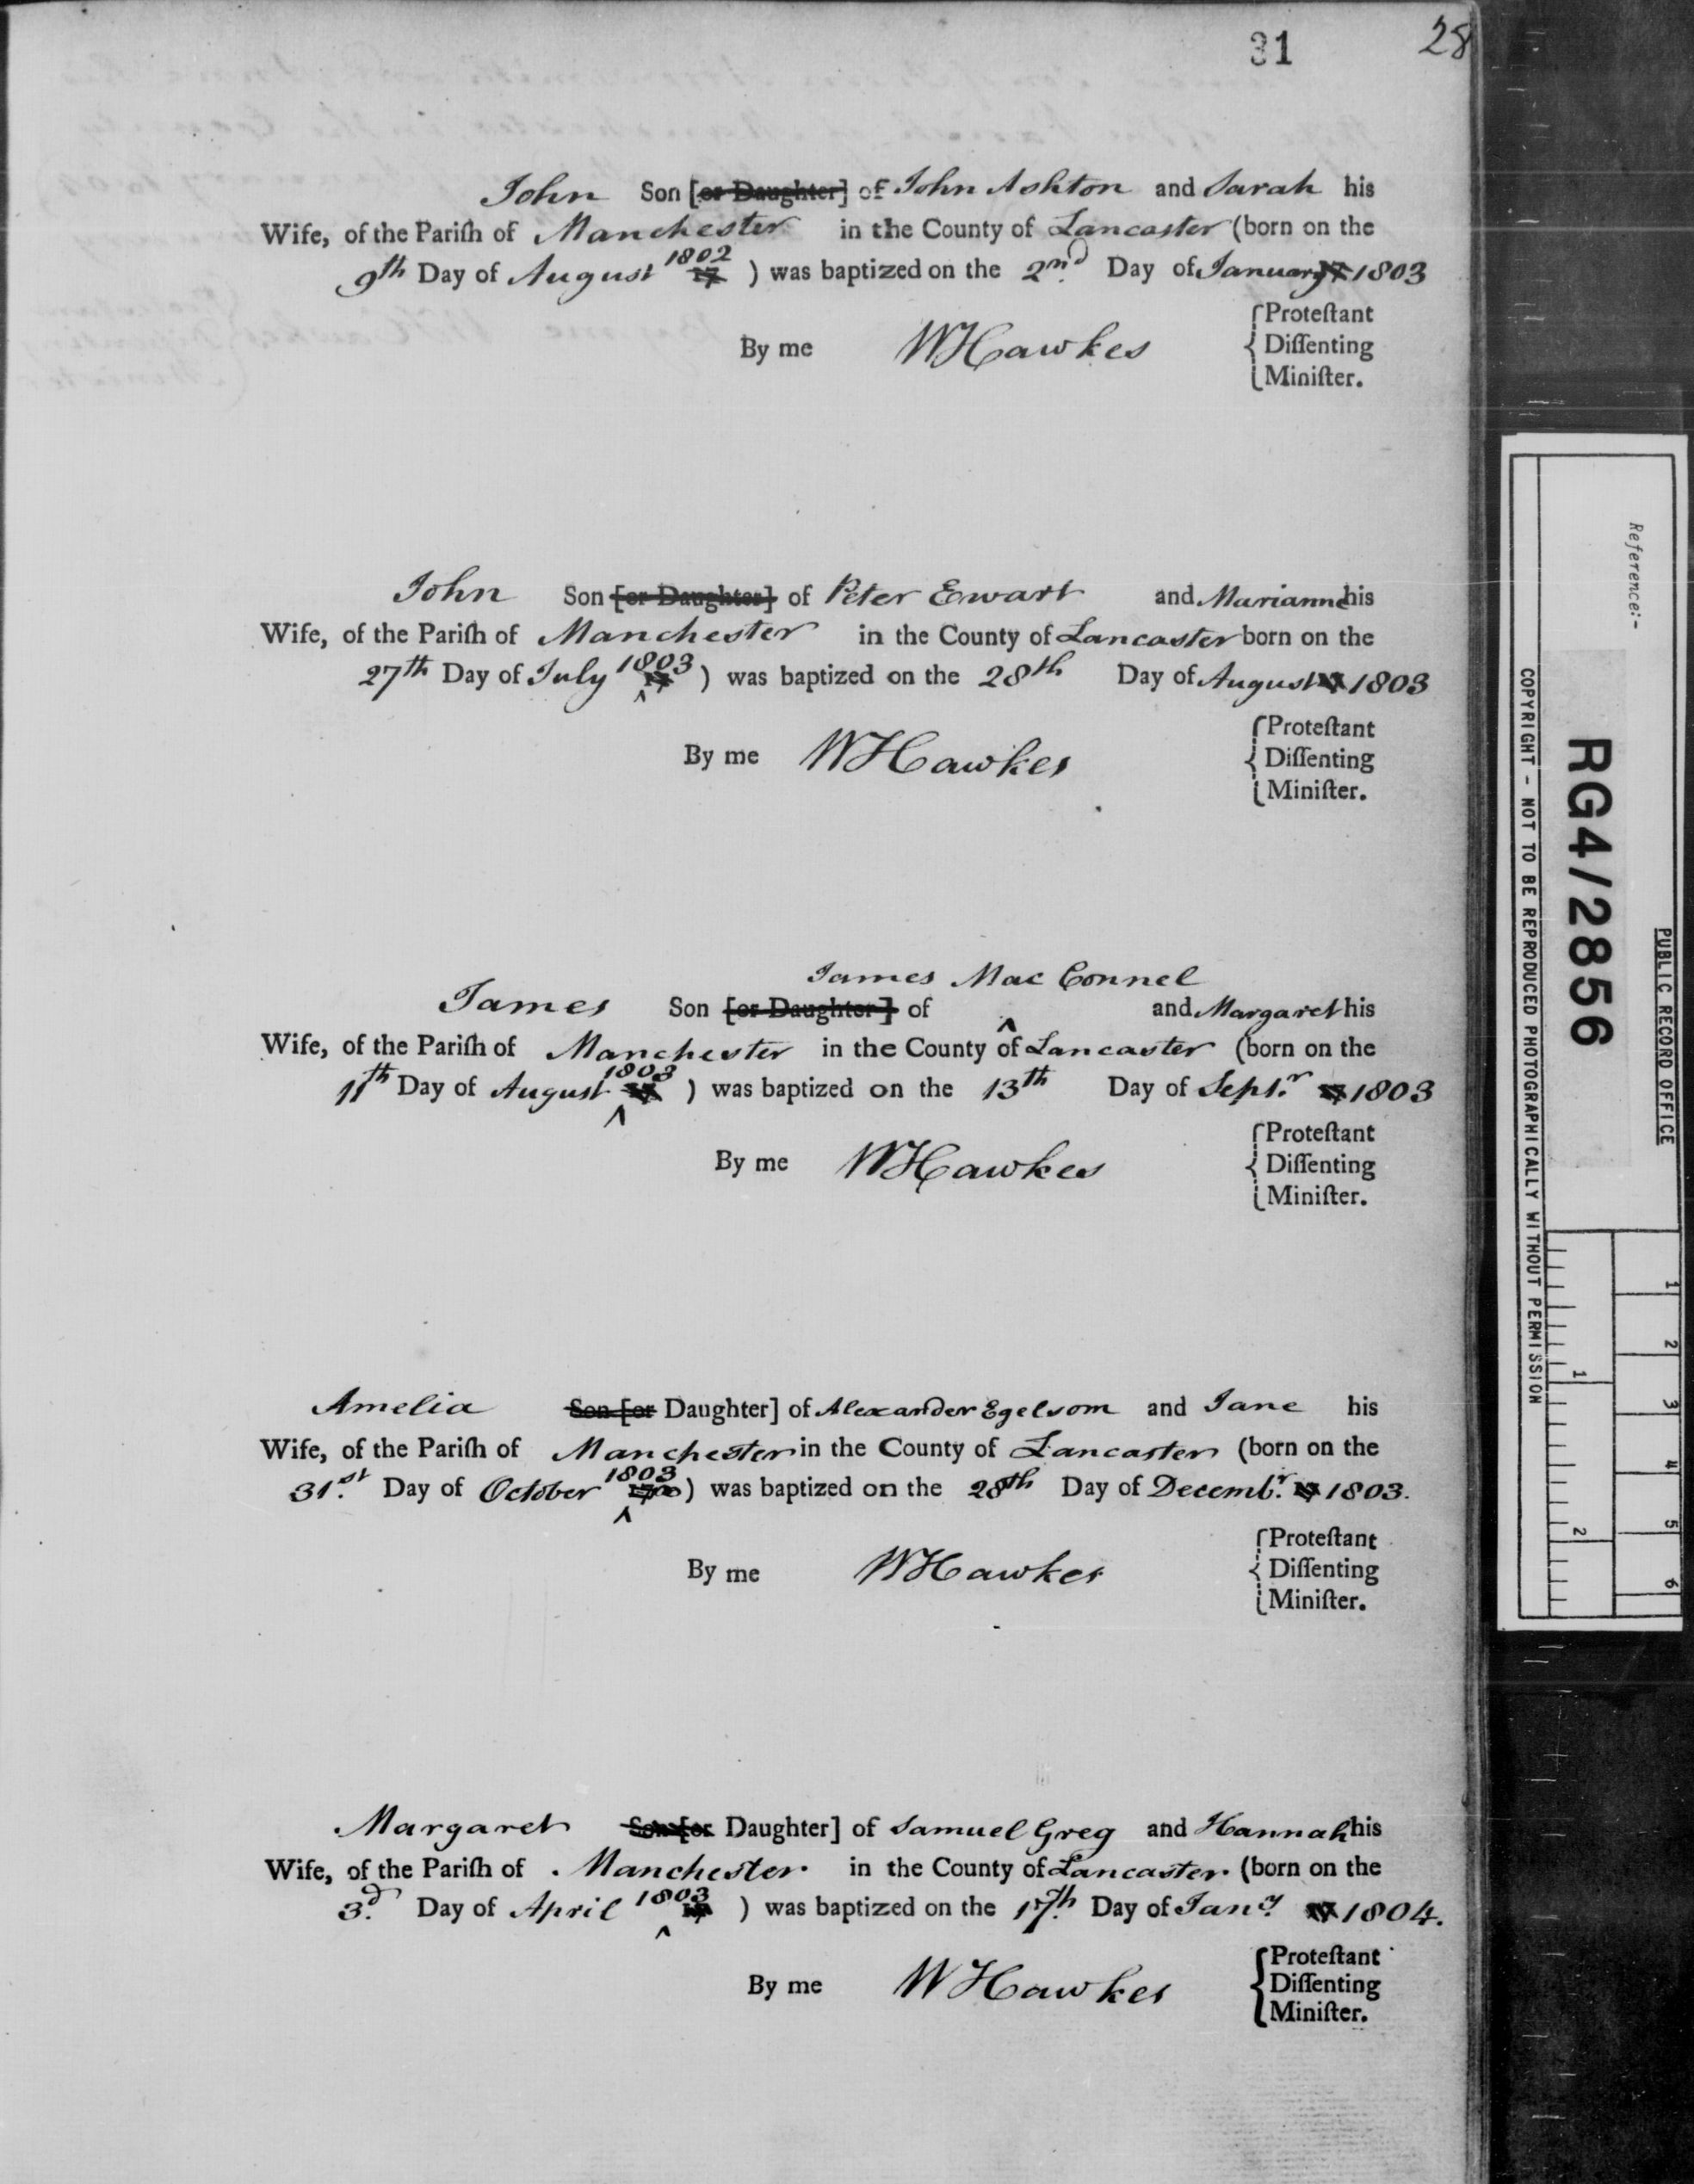 31
28
John Son [or Daughter] of John Ashton and Sarah his
Wife, of the Pariſh of Manchester in the County of Lancaster (born on the
9th Day of August 1802 17 ) was baptized on the 2nd. Day of January 17 1803
By me WHawkes {Proteſtant
Diſſenting
Miniſter.
John Son [or Daughter] of Peter Ewart and Marianne his
Wife, of the Pariſh of Manchester in the County of Lancaster born on the
27th Day of July 1803 17 ) was baptized on the 28th Day of August 17 1803
By me WHawkes {Proteſtant
Diſſenting
Miniſter.
James Mac Connel
James Son [or Daughter] of ^ and Margaret his
Wife, of the Pariſh of Manchester in the County of Lancaster (born on the
11th Day of August 1803 17 ) was baptized on the 13th Day of Sept.r 17 1803
By me WHawkes {Proteſtant
Diſſenting
Miniſter.
Amelia Son [or Daughter] of Alexander Egelsom and Jane his
Wife, of the Pariſh of Manchester in the County of Lancaster (born on the
31.st Day of October 1803 17 ) was baptized on the 28th Day of Decemb.r 17 1803.
By me WHawkes {Proteſtant
Diſſenting
Miniſter.
Margaret Son [or Daughter] of Samuel Greg and Hannah his
Wife, of the Pariſh of Manchester in the County of Lancaster (born on the
3.d Day of April 1803 17 ) was baptized on the 17.th Day of Jan.y 17 1804.
By me WHawkes {Proteſtant
Diſſenting
Miniſter.
PUBLIC RECORD OFFICE
Reference:-
RG4/2856
COPYRIGHT - NOT TO BE REPRODUCED PHOTOGRAPHICALLY WITHOUT PERMISSION
1 2 3 4 5 6
1 2